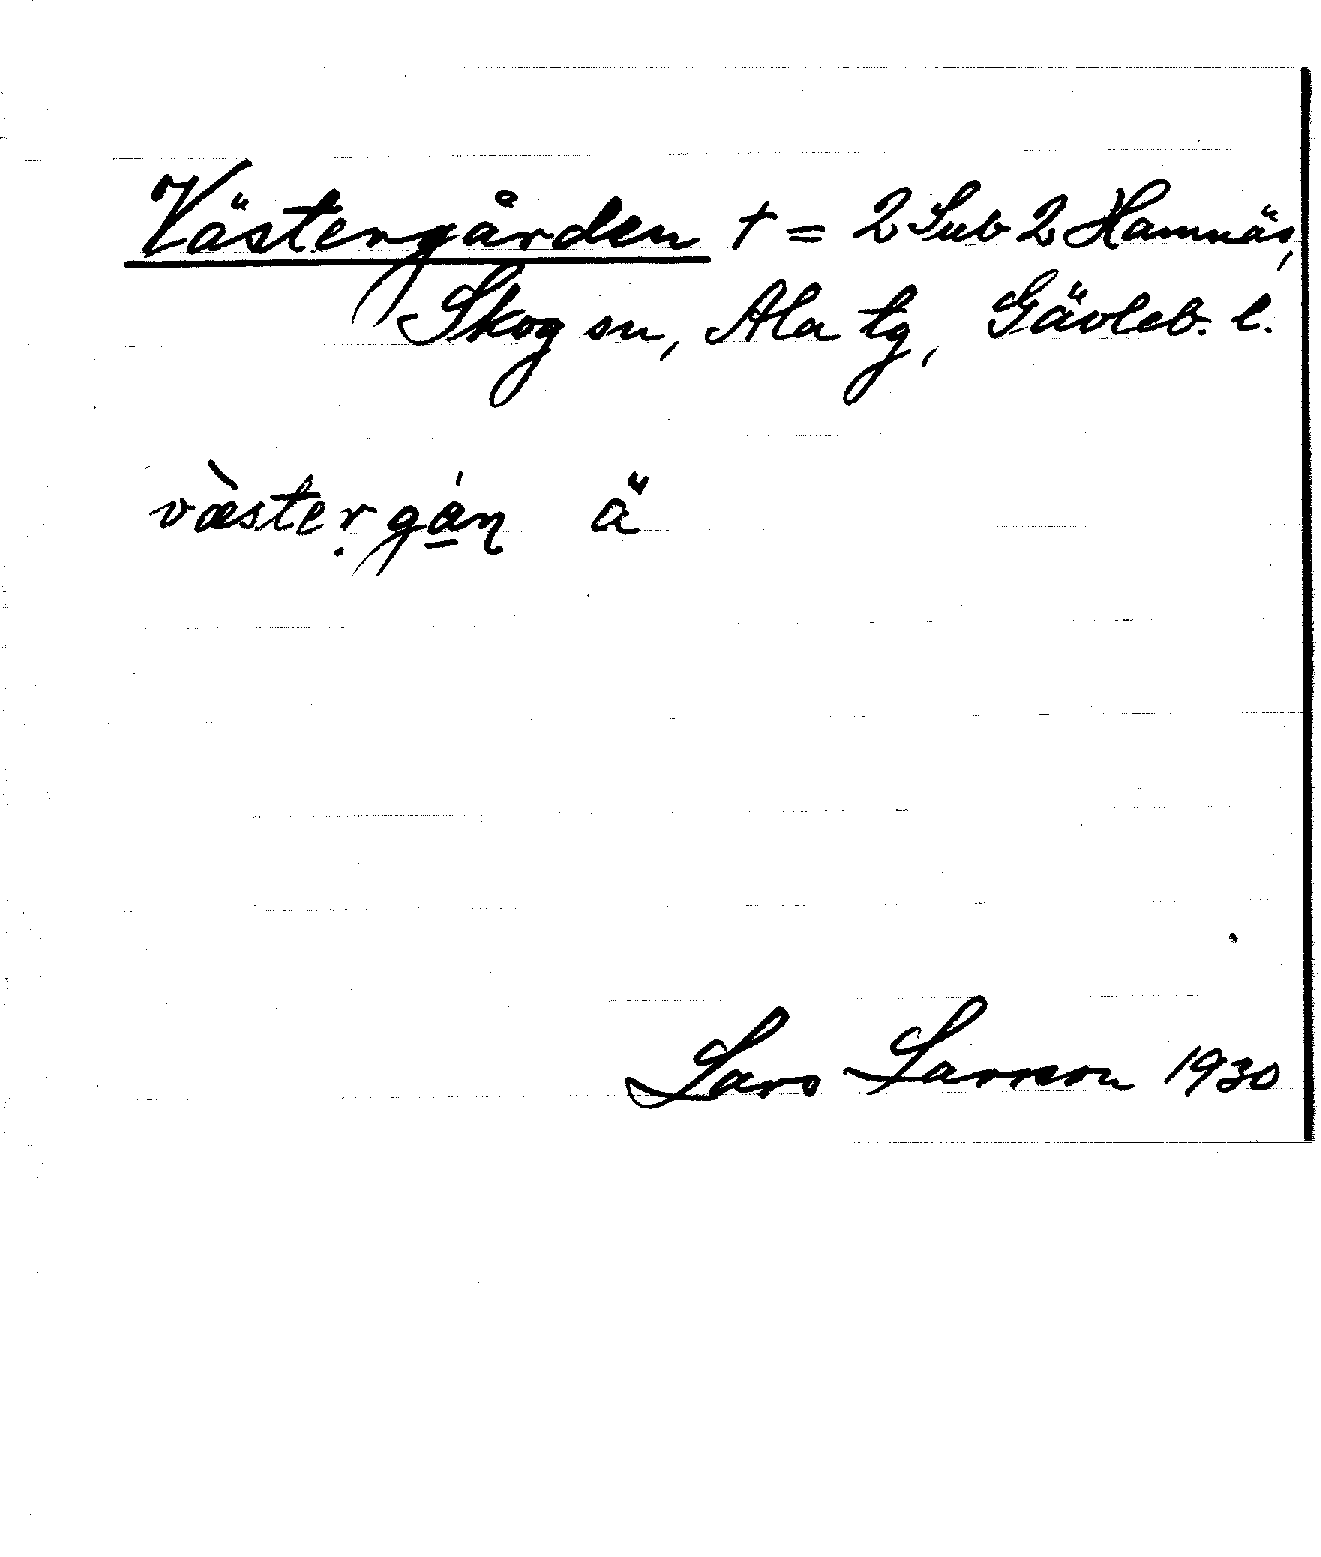 Västergården † = 2 Sub 2 Hamnäs,
Skog sn, Ala tg, Gävleb. l.
vàstẹr gá̱n ä
Lars Larsson 1930